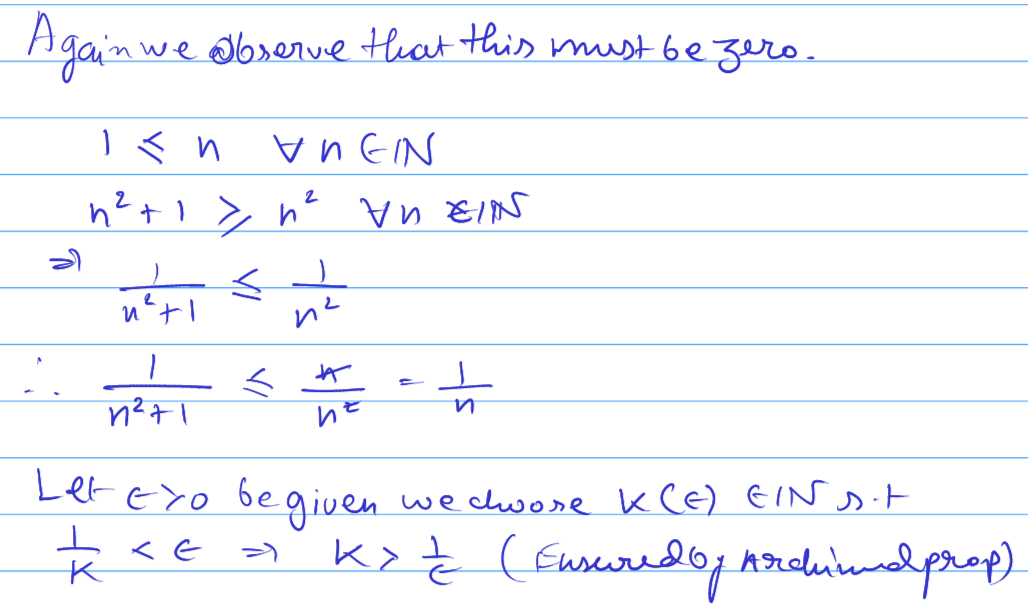 Again we observe that this must be zero.
1 ≤ n ∀ n ∈ ℕ
n² + 1 ≥ n² ∀ n ∈ ℕ
⇒ 1/(n² + 1) ≤ 1/n²
∴ 1/(n² + 1) ≤ n/n² = 1/n
Let ε > 0 be given we choose K(ε) ∈ ℕ s.t
1/K < ε ⇒ K > 1/ε (Ensured by Archimed prop)